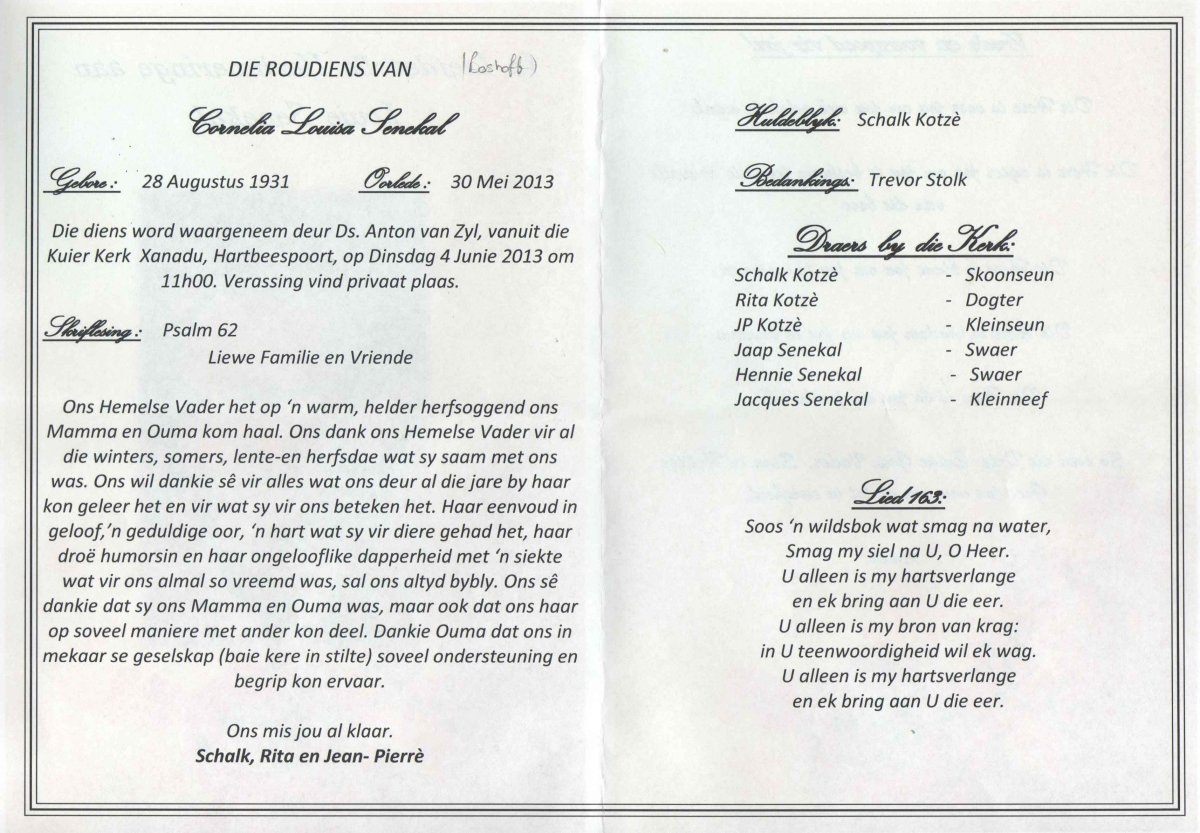 DIE ROUDIENS VAN
Cornelia Louisa Senekal
Gebore: 28 Augustus 1931 Oorlede: 30 Mei 2013
Die diens word waargeneem deur Ds. Anton van Zyl, vanuit die
Kuier Kerk Xanadu, Hartbeespoort, op Dinsdag 4 Junie 2013 om
11h00. Verassing vind privaat plaas.
Skriflesing: Psalm 62
Liewe Familie en Vriende
Ons Hemelse Vader het op ‘n warm, helder herfsoggend ons
Mamma en Ouma kom haal. Ons dank ons Hemelse Vader vir al
die winters, somers, lente-en herfsdae wat sy saam met ons
was. Ons wil dankie sê vir alles wat ons deur al die jare by haar
kon geleer het en vir wat sy vir ons beteken het. Haar eenvoud in
geloof,’n geduldige oor, ‘n hart wat sy vir diere gehad het, haar
droë humorsin en haar ongelooflike dapperheid met ‘n siekte
wat vir ons almal so vreemd was, sal ons altyd bybly. Ons sê
dankie dat sy ons Mamma en Ouma was, maar ook dat ons haar
op soveel maniere met ander kon deel. Dankie Ouma dat ons in
mekaar se geselskap (baie kere in stilte) soveel ondersteuning en
begrip kon ervaar.
Ons mis jou al klaar.
Schalk, Rita en Jean- Pierrè
Huldeblyk: Schalk Kotzè
Bedankings: Trevor Stolk
Draers by die Kerk:
Schalk Kotzè - Skoonseun
Rita Kotzè - Dogter
JP Kotzè - Kleinseun
Jaap Senekal - Swaer
Hennie Senekal - Swaer
Jacques Senekal - Kleinneef
Lied 163:
Soos ‘n wildsbok wat smag na water,
Smag my siel na U, O Heer.
U alleen is my hartsverlange
en ek bring aan U die eer.
U alleen is my bron van krag:
in U teenwoordigheid wil ek wag.
U alleen is my hartsverlange
en ek bring aan U die eer.